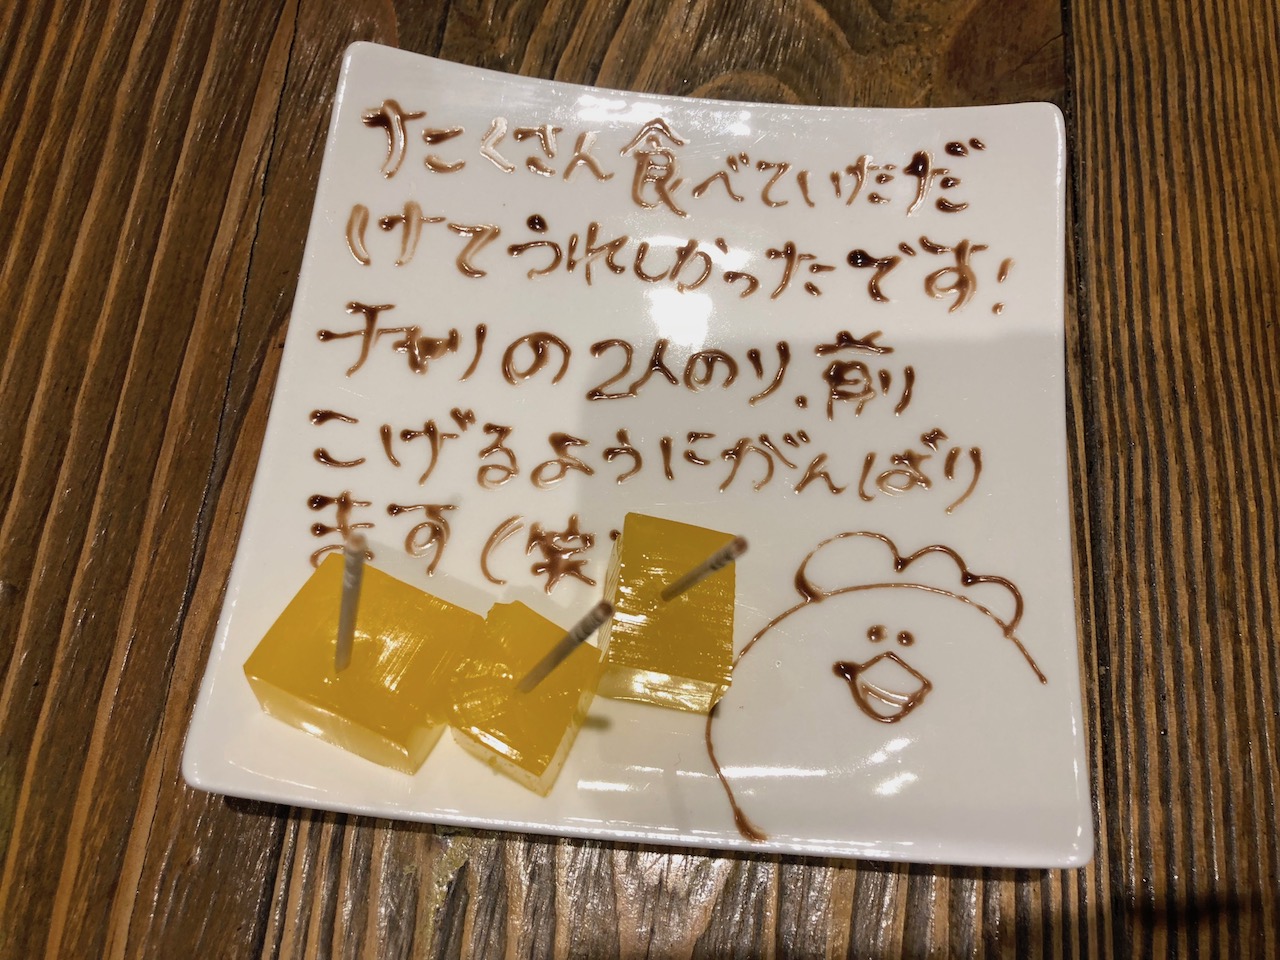 たくさん食べていただだ
けてうれしかったです!
チャリの2人のり、前
こげるようにがんばり
ます(笑